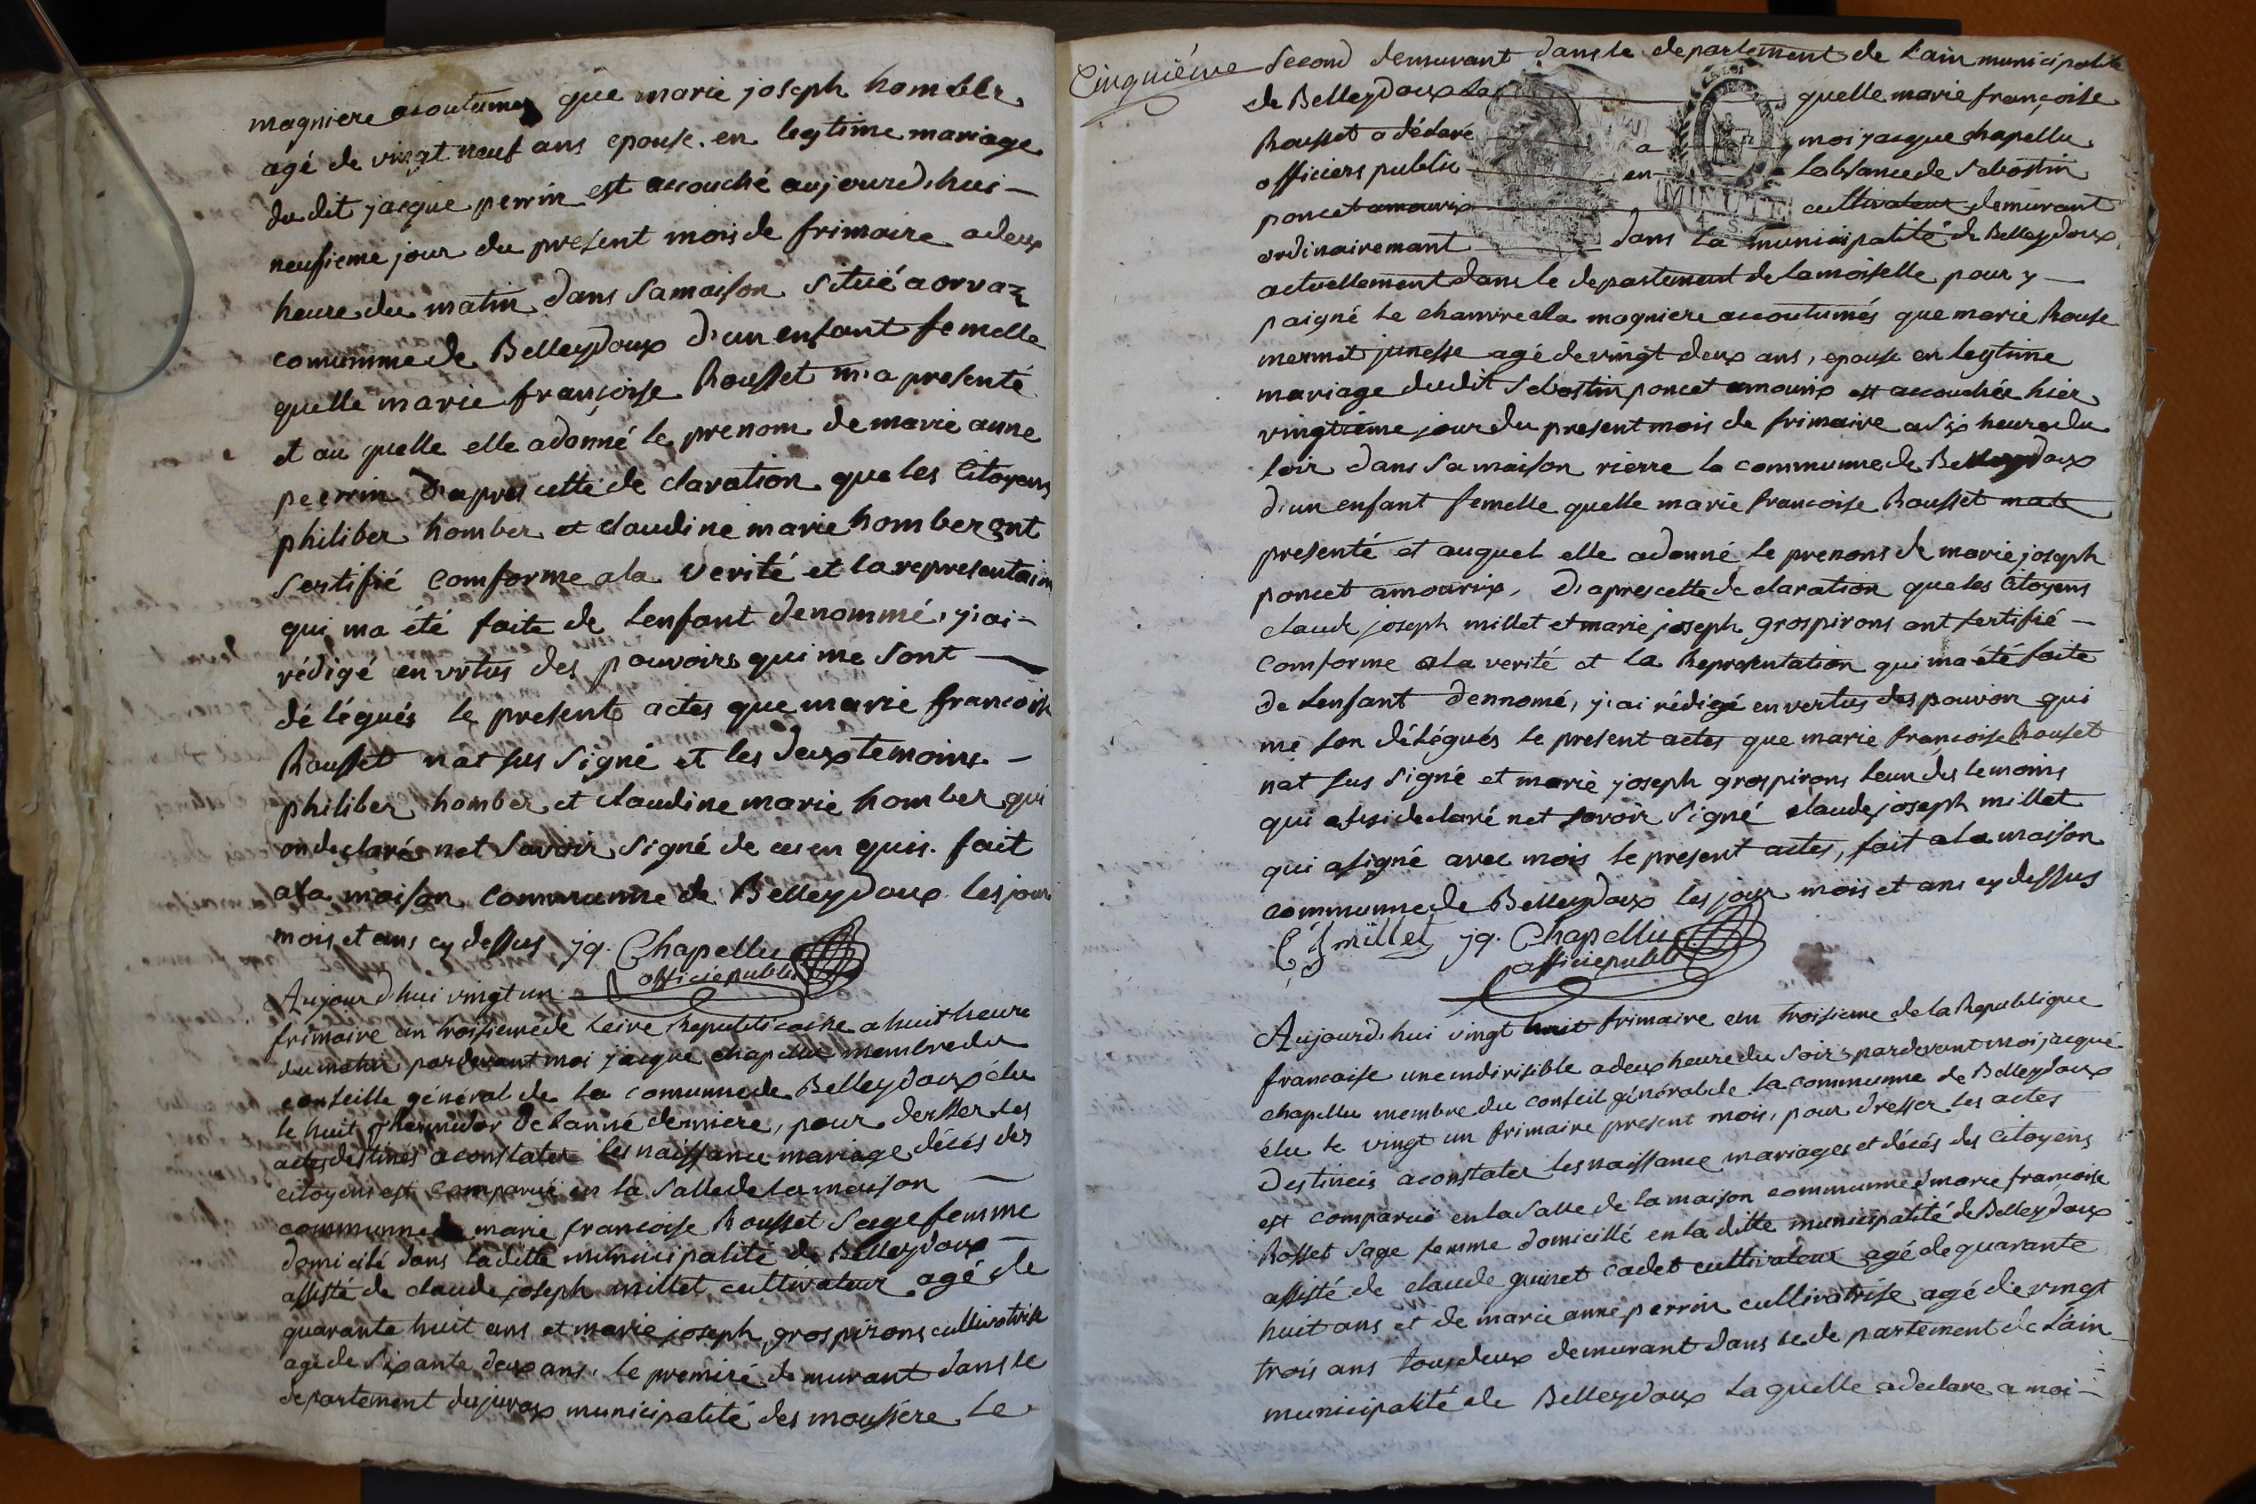 magniere acoutumes que marie joseph homber
agé de vingt neuf ans epouse en legtime mariage
du dit jacque perrin est acouché aujourd'hui
neufieme jour du present mois de frimaire a deux
heure du matin dans sa maison situé a orvaz
comumme de Belleydoux d'un enfant femelle
quelle marie françoise Rousset m'a presenté
et au quelle elle a donné le prenom de marie anne
perrin d'apres cette de claration que les Citoyens
philiber homber et claudine marie homber ont
sertifié comforme a la verité et la representaion
qui ma été faite de lenfant denommé, j'ai
rédigé en vrtus des pouvoirs qui me sont
délégués le present actes que marie francoise
Rousset nat sus signé et les deux temoins
philiber homber et claudine marie homber qui
on declaré net savoir signé de ce en quis. fait
a la maison communne de Belleydoux les jour
mois et ans cy dessus jq. Chapellu
officie publi
Aujourd'hui vingt un
frimaire an troisieme de leire Republicaine a huit heure
du matin pardevant moi jacque chapellu membre du
conseille général de la comunne de Belleydoux élu
le huit thermidor de lanné derniere, pour dersser les
actes destinés a constater les naissance mariage décés des
citoyens est comparuë en la salle de la maison
communne marie francoise Rousset sage femme
domicilé dans la ditte municipalité de Belleydoux
assisté de claude joseph millet cultivateur agé de
quarante huit ans et marie joseph grospirons cultivatrise
agé de sixante deux ans, le premiré demurant dans le
departement du juras municipalité des moussiere le
Cinquiéme second demurant dans le departement de lain municipalité
de Belleydoux la quelle marie françoise
Rousset a déclaré a moi jacque chapellu
officiers public en labsance de sebastin
poncet amourix cultivateur demurant
ordinairemant dans la municipalité de Belleydoux
MINUTE
actuellement dans le departement de la moiselle pour y
paigné le chamvre a la magniere accoutumés que marie Rouse
mermet junesse agé de vingt deux ans, epouse en legtime
mariage dudit sebastin poncet amourix est accouchée hier
vingtieme jour du present mois de frimaire a six heure du
soir dans sa maison rierre la communne de Belleydoux
d'un enfant femelle quelle marie francoise Rousset mate
presenté et auquel elle a donné le prenons de marie joseph
poncet amourix, d'apres cette de claration que les Citoyens
claude joseph millet et marie joseph grospirons ont sertifié
comforme a la verité et la Representation qui ma été faite
de lenfant dennomé, j'ai rédigé en vertus des pouvoir qui
me son délégués le present actes que marie françoise Rouset
nat sus signé et marie joseph grospirons leun des temoins
qui declaré net savoir signé claude joseph millet
qui a signé avec mois le present actes, fait a la maison
communne de Belleydoux les jour mois et ans cy dessus
C J millet jq. Chapellu
officie publi
Aujourd'hui vingt huit frimaire eun troisieme de la Republique
francaise une indivisible a deux heure du soir pardevant moi jacque
chapellu membre du conseil général de la communne de Belleydoux
élu le vingt un frimaire present mois, pour dresser les actes
destineis a constater les naissance mariages et décés des Citoyens
est comparuë en la salle de la maison communne marie francoise
Rosset sage femme domicillé en la ditte municipalité de Belleydoux
assisté de claude guinet cadet cultivateur agé de quarante
huit ans et de marie anne perrin cultivatrise agé de vingt
trois ans tous deux demurant dans le de partement de lain
municipalité de Belleydoux la quelle a declare a moi